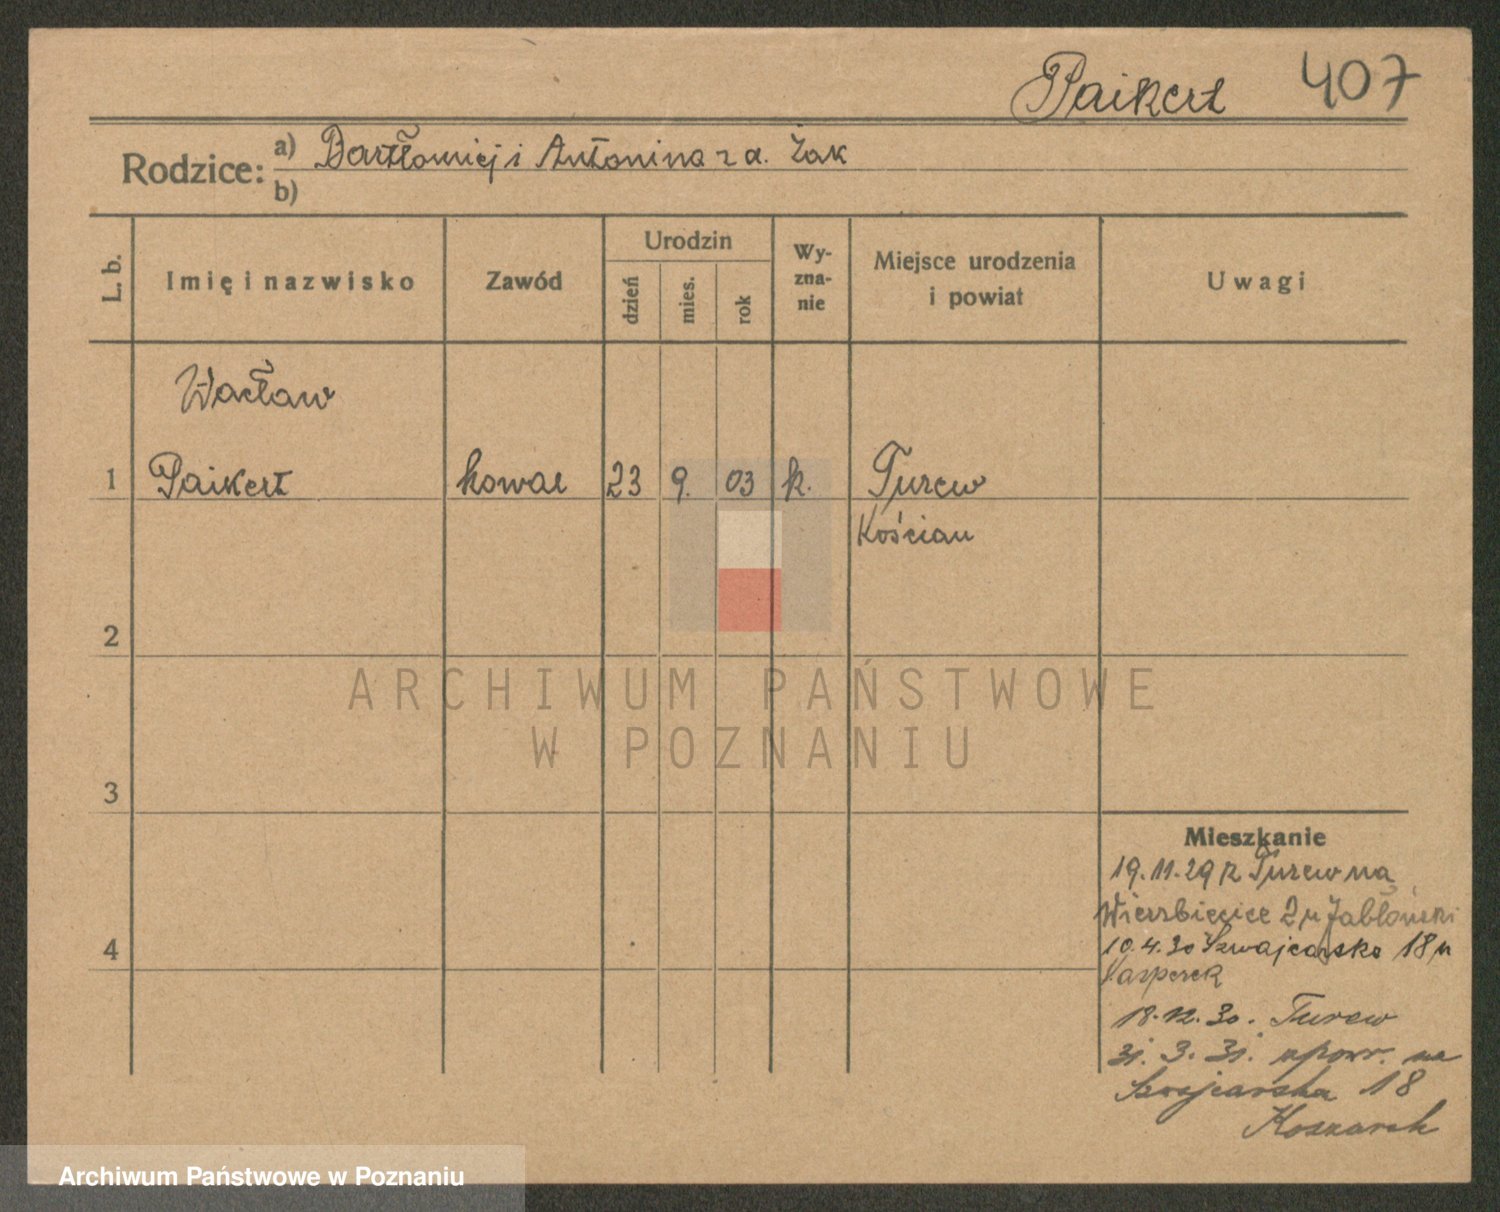 Paikert 407
Rodzice: a) Bartłomiej i Antonina z d. Żak
b)
L. b.
Imię i nazwisko
Zawód
Urodzin
dzień
mies.
rok
Wy-
zna-
nie
Miejsce urodzenia
i powiat
Uwagi
Wacław
1 Paikert kowal 23 9. 03 k. Turew
Kościan
2
3
4
Mieszkanie
19.11.29 z Turew na
Wierzbięcice 2 u Jabłoński
10.4.30 Szwajcarska 18 u
Kasperek
18.12.30. Turew
31. 3. 31. spowr. na
Szwajcarska 18
ARCHIWUM PAŃSTWOWE
W POZNANIU
Archiwum Państwowe w Poznaniu